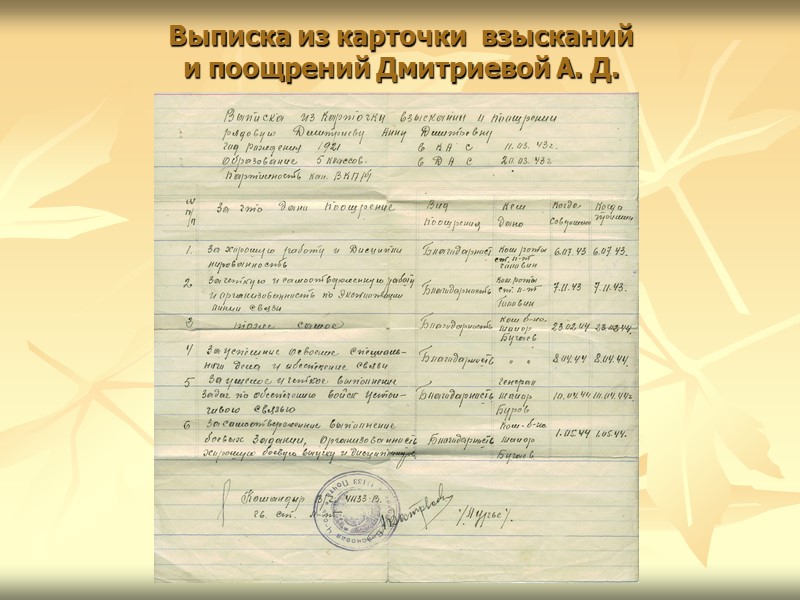 Выписка из карточки взысканий
и поощрений Дмитриевой А. Д.
Выписка из карточки взыскании и поощрении
рядовую Дмитриеву Анну Дмитриевну
год рождения 1921 в КА с 11.03.43г.
Образование 5 классов. в ДА с 20.03.43г
Партийность кан. ВКП
№ п/п За что дано поощрение Вид поощрения Кем дано Когда Когда
1. За хорошую работу и дисципли Благодарност Ком роты 6.07.43 6.07.43.
нированность ст. л-т
2. За четкую и самоотверженную работу Благодарность Ком. роты 7.11.43 7.11.43.
и организованность по эксплоатации ст. л-т
линии связи
3 тоже самое Благодарность Ком б-на 23.02.44 23.02.44.
майор
Бугаев
4 За успешное освоение специаль- Благодарность " " 8.04.44 8.04.44.
ного дела и обеспечение связи
5 За умелое и четкое выполнение Благодарность генерал 10.04.44 10.04.44г.
задач по обеспечению войск устой- майор
чивою связью Буров
6 За самоотверженное выполнение Благодарность Ком-б-на 1.05.44 1.05.44.
боевых задании, организованность майор
хорошую боевую выучку и дисциплину Бугаев
Командир
гв. ст.